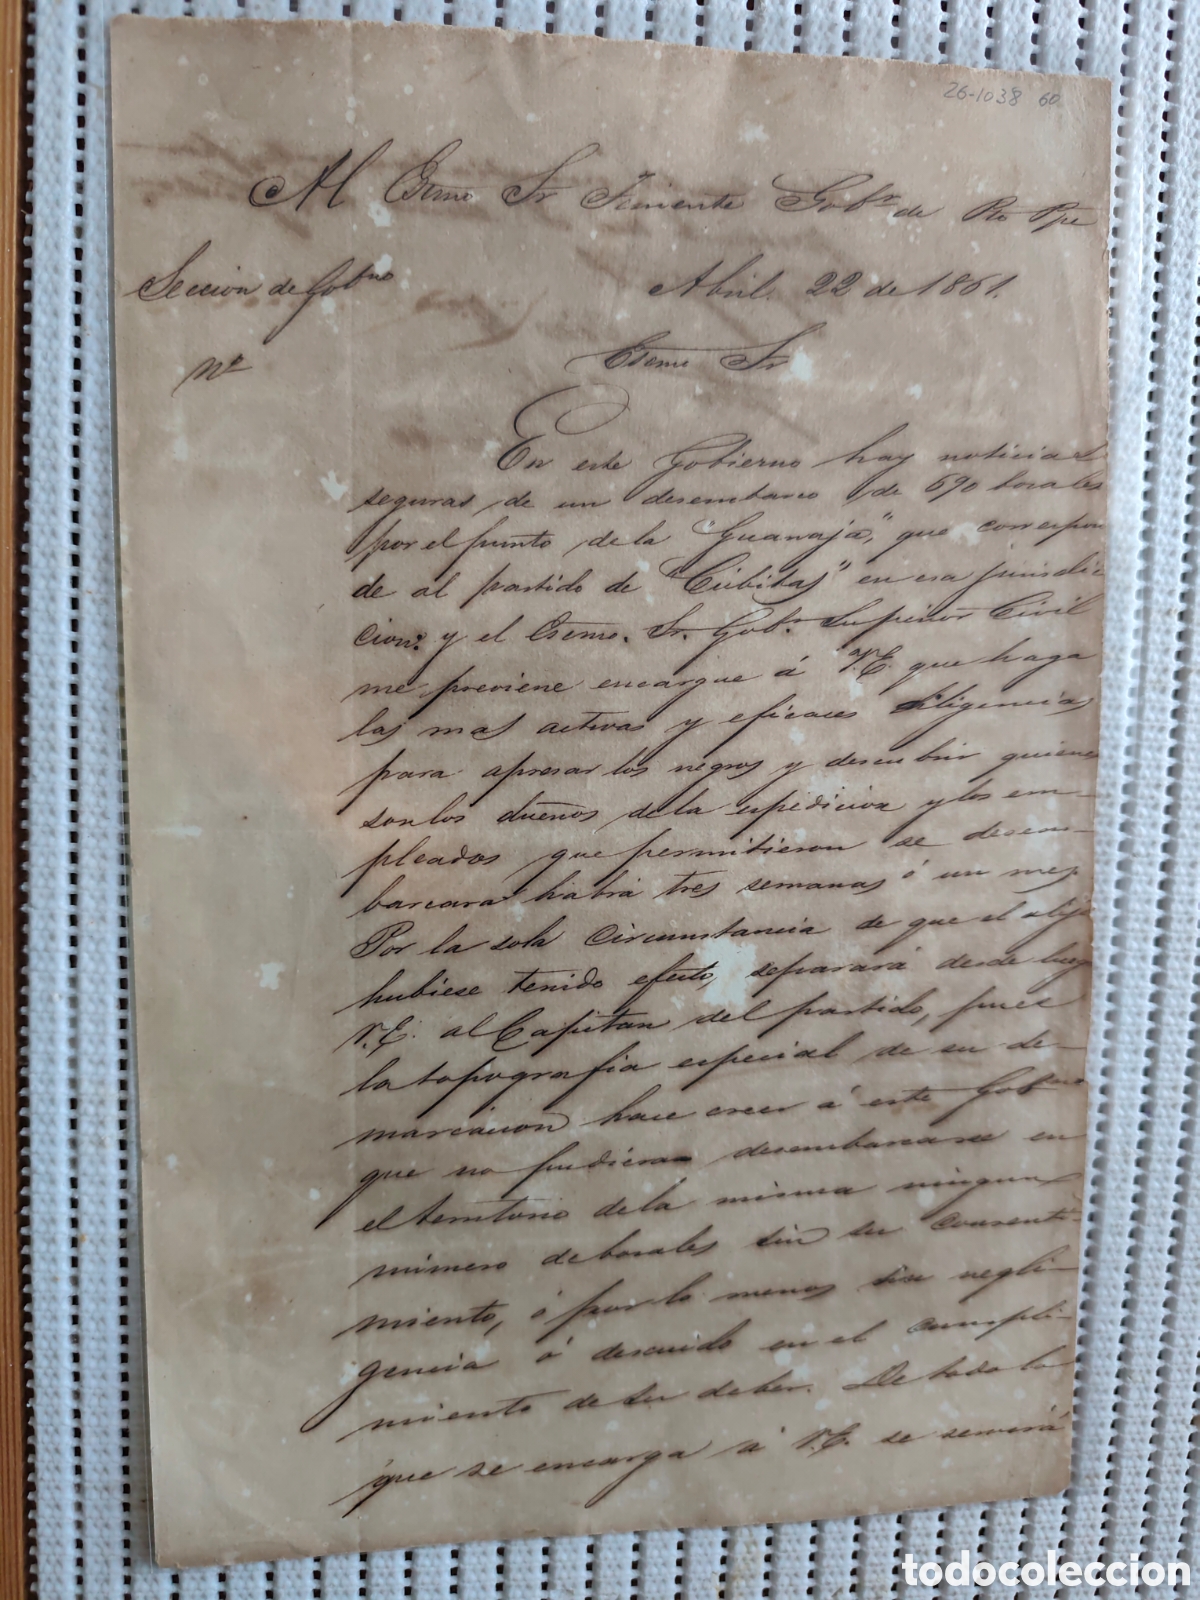 26-1038 60
Al Escmo Sr Teniente Gobr de Pto Ppe
Sección de Gobno
Abril 22 de 1861.
No
Escmo Sr
En este Gobierno hay noticias
seguras de un desembarco de 690 bozales
por el punto de la "Guanaja", que correspon
de al partido de "Cubitas" en esa jurisdic
cion: y el Escmo. Sr. Gobr. Superior Civil
me previene encargue á V.E. que haga
las mas activas y eficaces diligencias
para apresar los negros y descubrir quienes
son los dueños de la espedicion y los em-
pleados que permitieron se desem-
barcara habrá tres semanas ó un mes.
Por la sola circunstancia de que el alijo
hubiese tenido efecto, separará desde luego
V.E. al Capitan del partido, pues
la topografia especial de su de-
marcacion hace creer á este Gobno
que no pudieran desembarcarse en
el territorio de la misma ningun
número de bozales sin su consenti-
miento, ó por lo menos sin negli-
gencia ó descuido en el cumpli-
miento de su deber. De todo lo
que se encarga á V.E. se servirá
todocoleccion